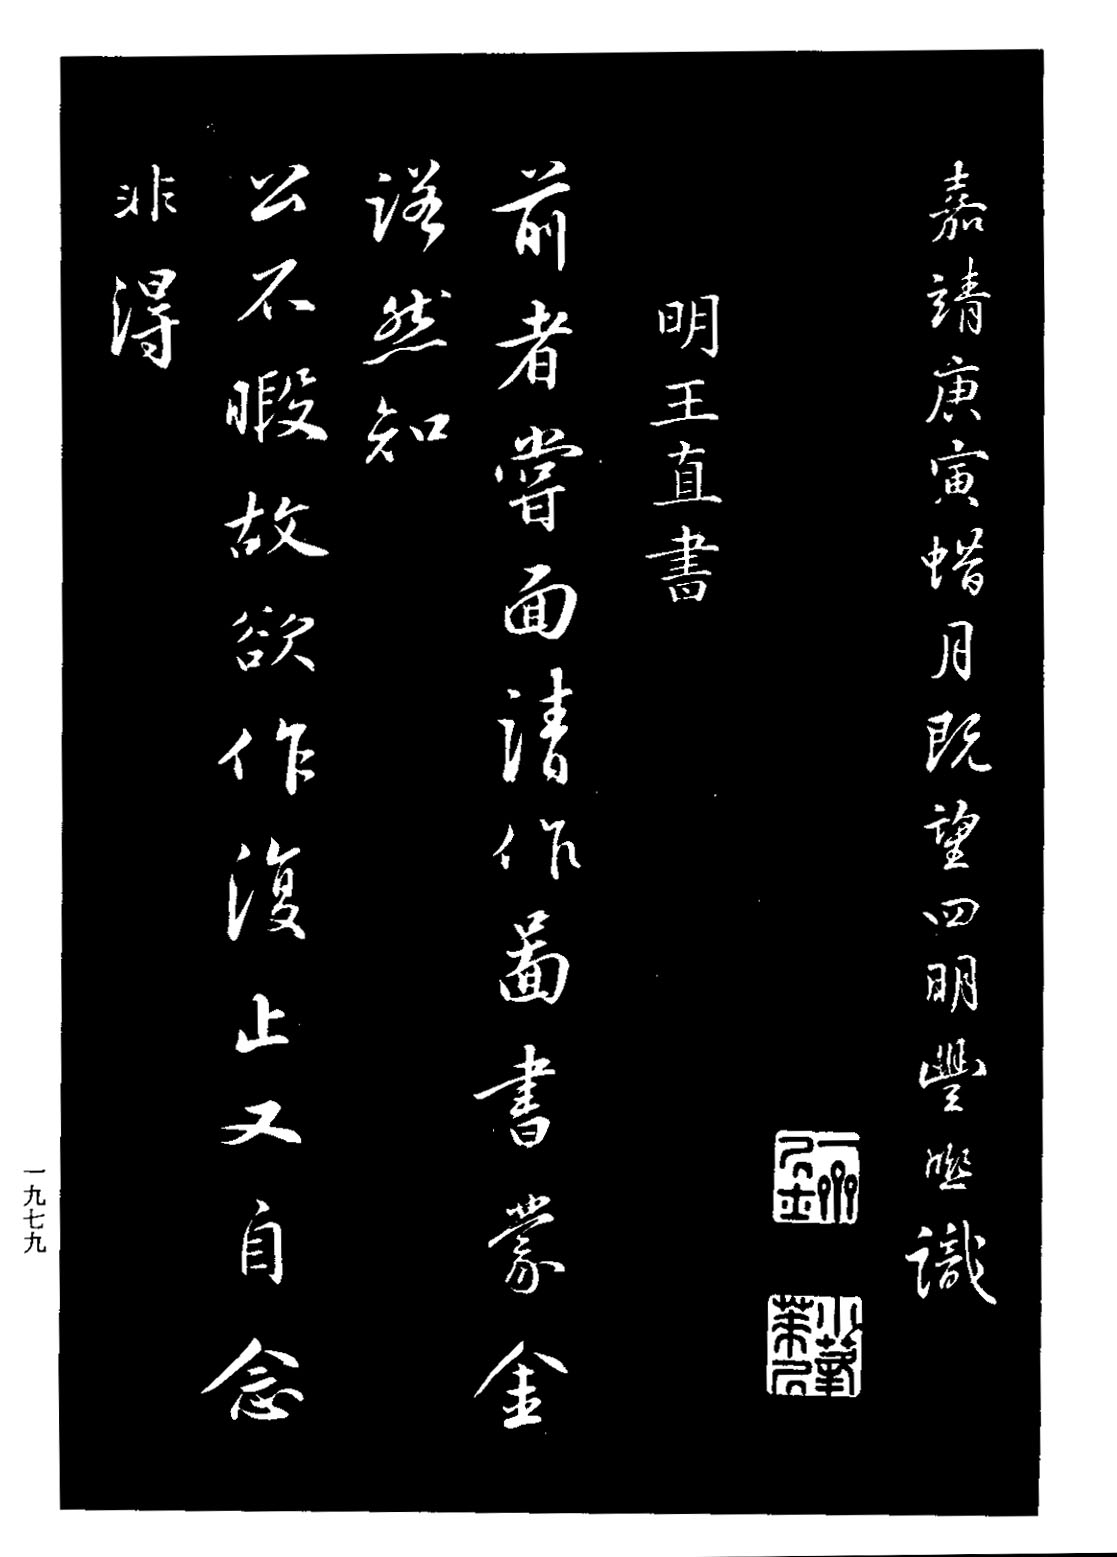 嘉靖庚寅蜡月既望四明豐熙識
明王直書
前者嘗面請作啚書蒙金
諾然知
公不暇故欲作復止又自念
非得
一九七九